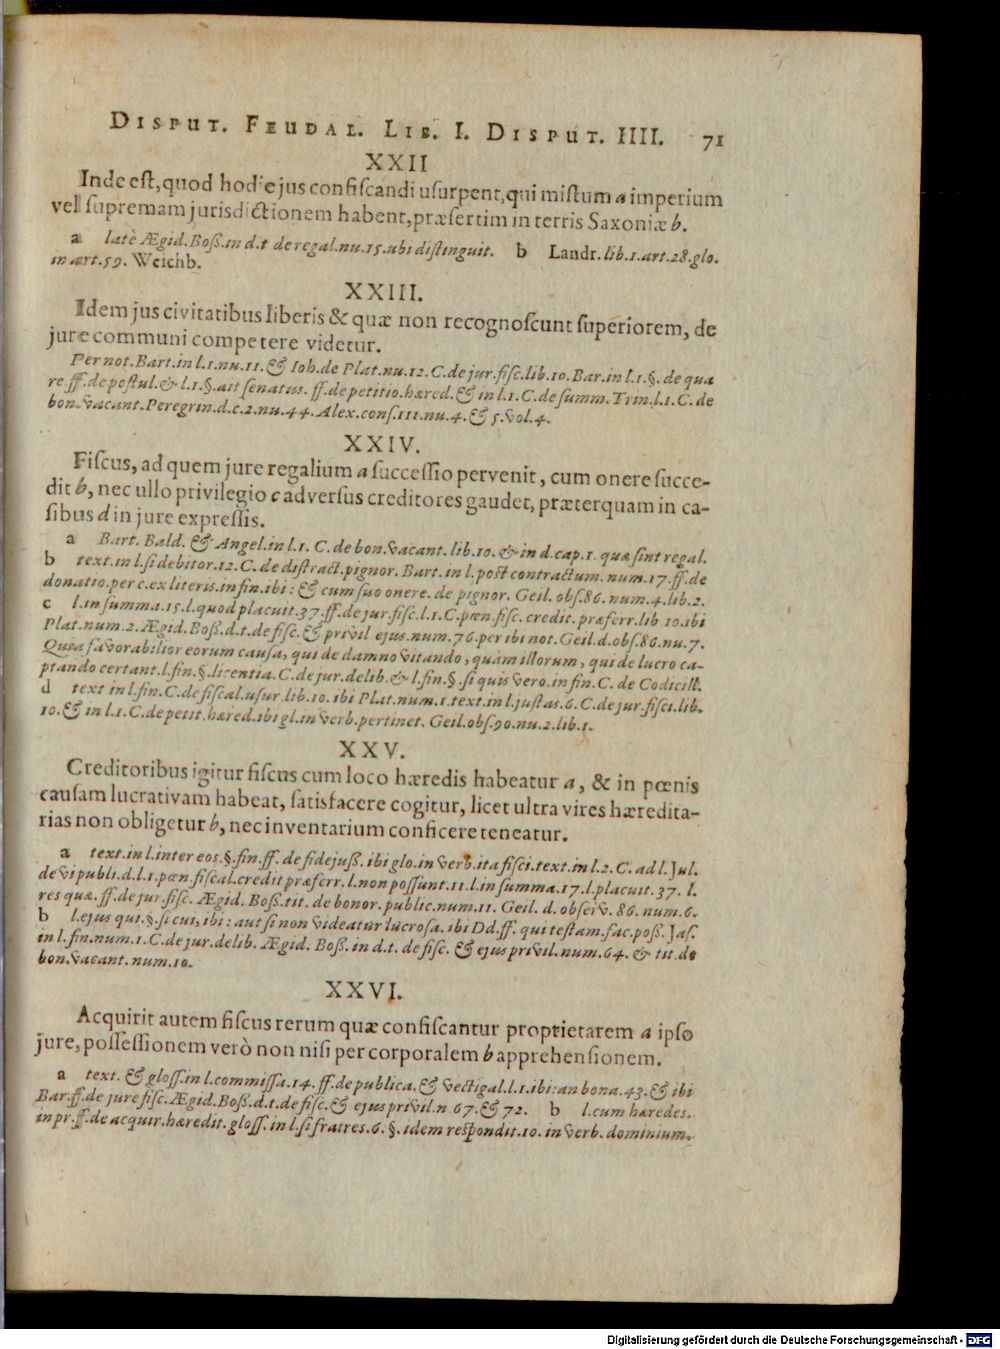 DISPUT. FEUDAL. LIB. I. DISPUT. IIII. 71
XXII
Inde eſt, quod hodie jus confiſcandi uſurpent, qui miſtum a imperium
vel ſupremam jurisdictionem habent, præſertim in terris Saxoniæ b.
a latè Ægid. Boß. in d. t de regal. nu. 15. ubi diſtinguit. b Landr. lib. 1. art. 28. glo.
in ært. 59. Weichb.
XXIII.
Idem jus civitatibus liberis & quæ non recognoſcunt ſuperiorem, de
jure communi competere videtur.
Per not. Bart. in l. 1. nu. 11. & Ioh. de Plat. nu. 12. C. de jur. fiſc. lib. 10. Bar. in l. 1. §. de qua
re ff. de poſtul. & l. 1. §. ait ſenatus. ff. de petitio. hæred. & in l. 1. C. de ſumm. Trin. l. 1. C. de
bon. vacant. Peregrin. d. c. 2. nu. 44. Alex. conſ. 111. nu. 4. & 5. vol. 4.
XXIV.
Fiſcus, ad quem jure regalium a ſucceſſio pervenit, cum onere ſucce-
dit b, nec ullo privilegio c adverſus creditores gaudet, præterquam in ca-
ſibus d in jure expreſſis.
a Bart. Bald. & Angel. in l. 1. C. de bon. vacant. lib. 10. & in d. cap. 1. quæ ſint regal.
b text. in l. ſi debitor. 12. C. de diſtract. pignor. Bart. in l. poſt contractum. num. 17. ff. de
donatio. per c. ex literis. in fin. ibi: & cum ſuo onere. de pignor. Geil. obſ. 86. num. 4. lib. 2.
c l. in ſumma. 15. l. quod placuit. 37. ff. de jur. fiſc. l. 1. C. pœn. fiſc. credit. præferr. lib 10. ibi
Plat. num. 2. Ægid. Boß. d. t. de fiſc. & privil ejus. num. 76. per ibi not. Geil. d. obſ. 86. nu. 7.
Quia favorabilior eorum cauſa, qui de damno vitando, quàm illorum, qui de lucro ca-
ptando certant. l. fin. §. licentia. C. de jur. delib. & l. fin. §. ſi quis vero. in fin. C. de Codicill.
d text in l. fin. C. de fiſcal. uſur. lib. 10. ibi Plat. num. 1. text. in l. juſtas. 6. C. de jur. fiſci. lib.
10. & in l. 1. C. de petit. hæred. ibi gl. in verb. pertinet. Geil. obſ. 90. nu. 2. lib. 1.
XXV.
Creditoribus igitur fiſcus cum loco hæredis habeatur a, & in pœnis
cauſam lucrativam habeat, ſatisfacere cogitur, licet ultra vires hæredita-
rias non obligetur b, nec inventarium conficere teneatur.
a text. in l. inter eos. §. fin. ff. de fidejuß. ibi glo. in verb. ita fiſci. text. in l. 2. C. ad l. Jul.
de vi publi. d. l. 1. pœn. fiſcal. credit præferr. l. non poſſunt. 11. l. in ſumma. 17. l. placuit. 37. l.
res quæ. ff. de jur. fiſc. Ægid. Boß. tit. de bonor. public. num. 11. Geil. d. obſerv. 86. num. 6.
b l. ejus qui. §. ſi cui, ibi: aut ſi non videatur lucroſa. ibi Dd. ff. qui teſtam. fac. poß. Jaſ.
in l. fin. num. 1. C. de jur. delib. Ægid. Boß. in d. t. de fiſc. & ejus privil. num. 64. & tit. de
bon. vacant. num. 10.
XXVI.
Acquirit autem fiſcus rerum quæ confiſcantur proprietarem a ipſo
jure, poſſeſſionem verò non niſi per corporalem b apprehenſionem.
a text. & gloſſ. in l. commiſſa. 14. ff. de publica. & vectigal. l. 1. ibi: an bona. 43. & ibi
Bar. ff. de jure fiſc. Ægid. Boß. d. t. de fiſc. & ejus privil. n 67. & 72. b l. cum hæredes.
in pr. ff. de acquir. hæredit. gloſſ. in l. ſi fratres. 6. §. idem reſpondit. 10. in verb. dominium.
Digitalisierung gefördert durch die Deutsche Forschungsgemeinschaft - DFG